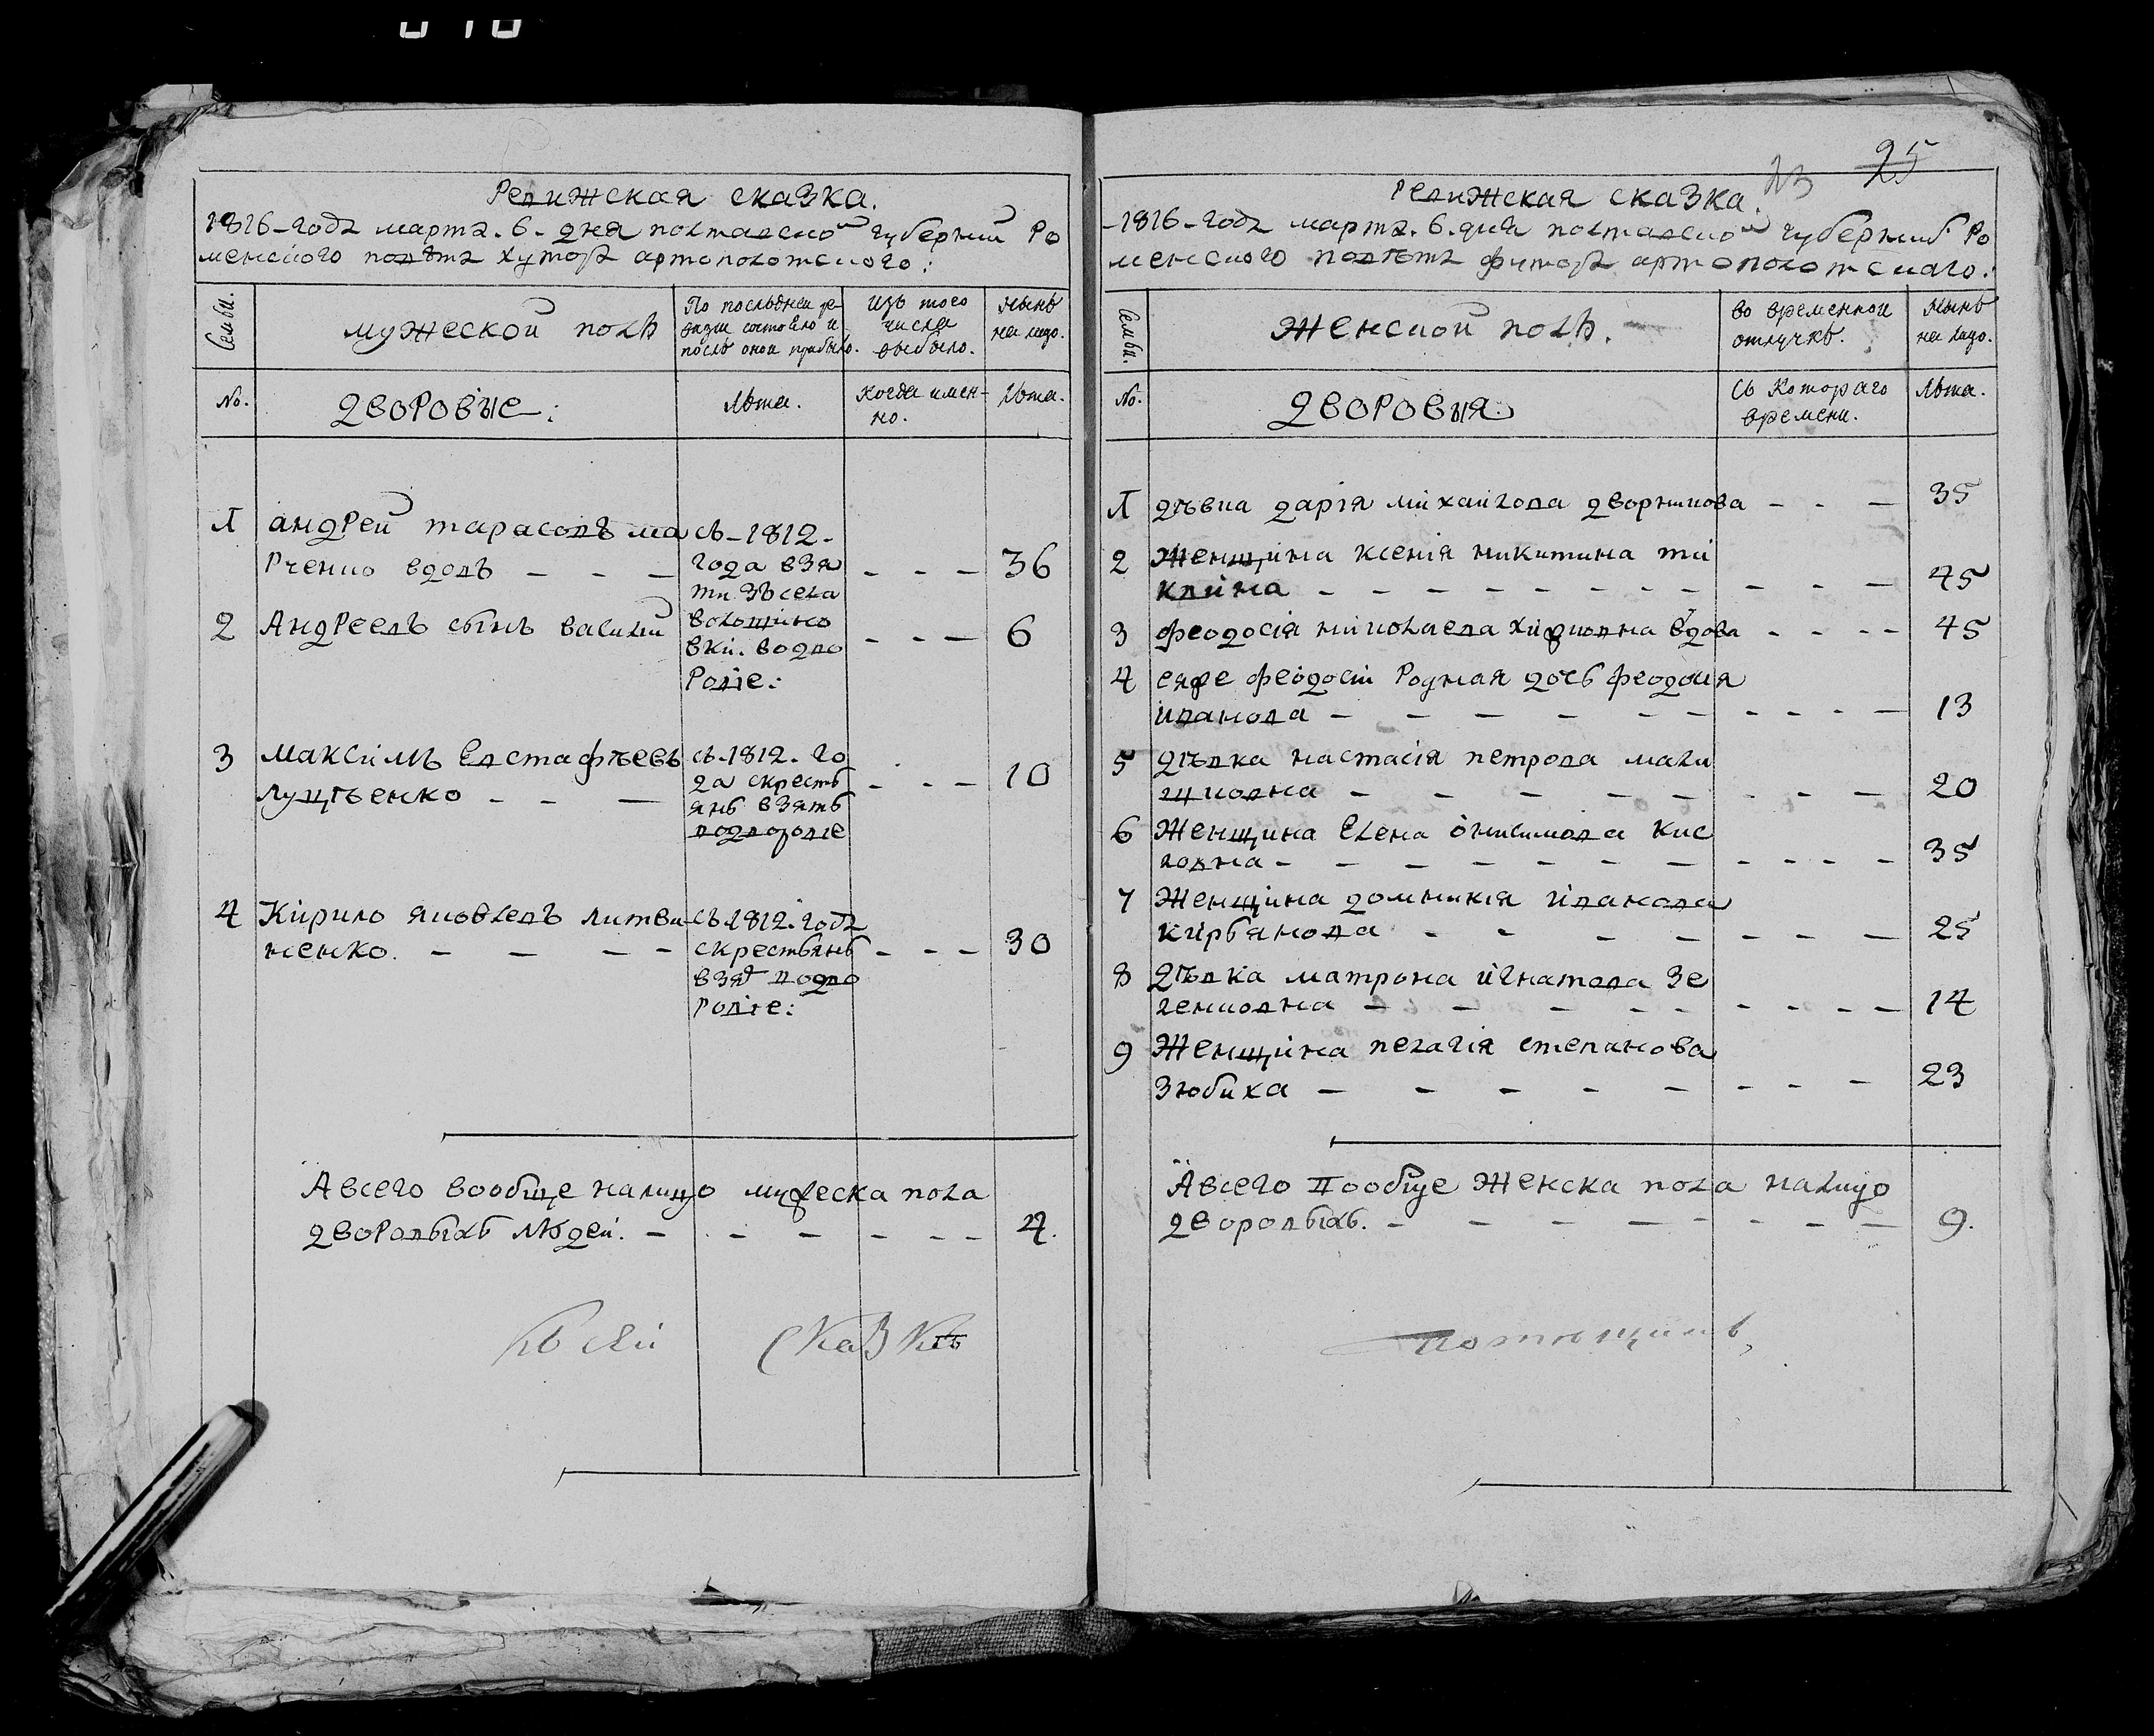 010
Ревижская сказка.
1816-года марта. 6. дня полтавской губернии Ро
менского повѣта хутора артополотского:
Семьи.
мужеской полъ
По послѣдней ре-
визіи состояло и
послѣ оной прибыло.
Изъ того
числа
выбыло.
Нынѣ
на лицо.
No.
дворовые:
Лѣта.
Когда имен-
но.
Лѣта.
1 андрей тарасовъ ма
рченко вдовъ - - - 36
съ-1812-
года взя
ти. зъ села
волошіно
вки. во дво
ровіе:
2 Андреевъ сынъ василій - - - 6
3 максимъ Евстафѣевъ
луцѣенко - - - 10
съ-1812. го
да скресть
янъ взятъ
водворовіе
4 Кирило яковлевъ литви
ненко. - - - - 30
съ-1812. года
скрестьянъ
взят водво
ровіе:
Авсего вообще налицо мужеска пола
дворовыхъ людей. - - - - - - - 4.
Къ сей сказкѣ
23 25
Ревижская сказка.
-1816-года марта. 6. дня полтавской губерниі Ро
менского повѣта футора артополотскаго:
Семьи.
Женской полъ.
во временной
отлучкѣ.
Нынѣ
на лицо.
No.
дворовыя
Съ Котораго
времени.
Лѣта.
1 дѣвка дарія міхайлова дворникова - - - 35
2 Женщина ксенія никитина
- - - - - - - - - 45
3 феодосія николаева вдова - - - - 45
4 еяже феодосіи Родная дочь феодосія
іванова - - - - - - - - - - 13
5 дѣвка настасія петрова мали
- - - - - - - - 20
6 Женщина Елена онисимова кис
ловна - - - - - - - - - - - 35
7 Женщина домникія іванова
кирѣянова - - - - - - - 25
8 дѣвка матрона игнатова Зе
ленковна - - - - - - - - - 14
9 Женщина пелагія степанова
Зюбиха - - - - - - - - 23
Авсего вообще Женска пола налицо
дворовыхъ. - - - - - - - - 9.